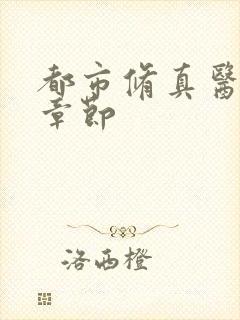 都市脩真醫
章節
洛西橙